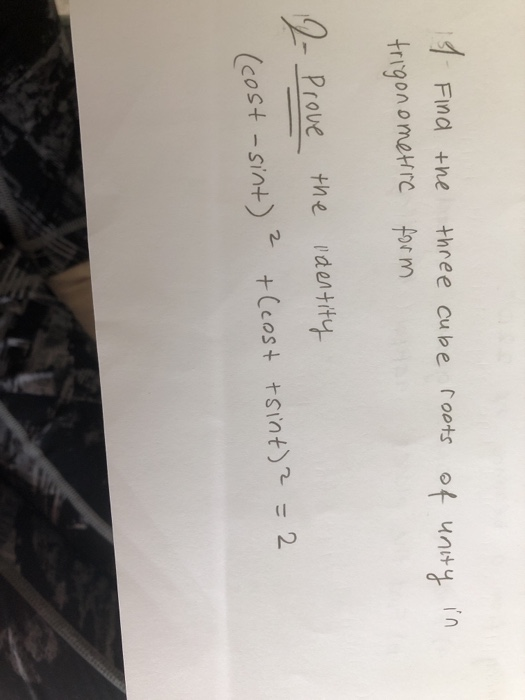 Find the three cube roots of unity in
trigonometric form
12- Prove the identity
(cost - sint)² + (cost + sint)² = 2